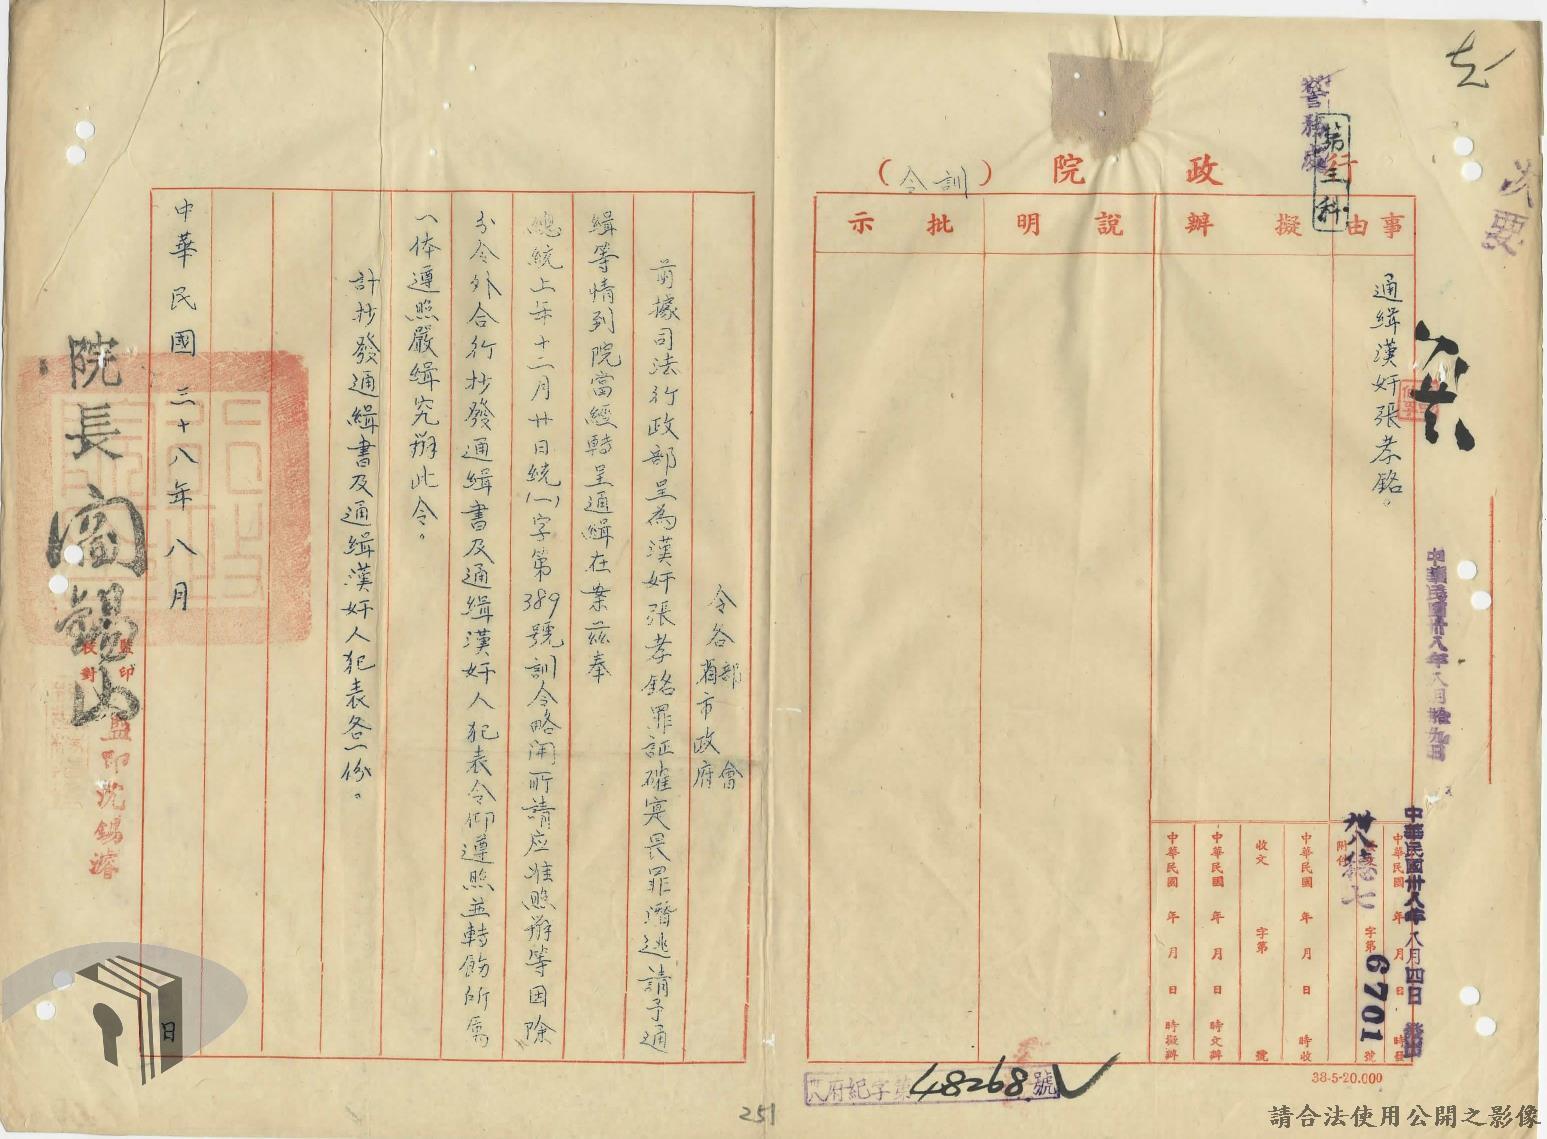 行政院（訓令）
事由
擬辦
說明
批示
通緝漢奸張孝銘。
警務處
第三科
次要
中華民國卅八年八月拾九日
中華民國卅八年八月四日發出
卅八穗七
字第6701號
附件
中華民國 年 月 日 時發
中華民國 年 月 日 時收
收文 字第 號
中華民國 年 月 日 時交辦
中華民國 年 月 日 時擬辦
38-5-20.000
府紀字第48268號
令各部會
省市政府
前據司法行政部呈為漢奸張孝銘罪証確寔畏罪潛逃請予通
緝等情到院當經轉呈通緝在案茲奉
總統上年十二月廿日統(一)字第389號訓令略開所請应准照辦等因除
分令外合行抄發通緝書及通緝漢奸人犯表令仰遵照並轉飭所屬
一体遵照嚴緝究辦此令。
計抄發通緝書及通緝漢奸人犯表各一份。
中華民國三十八年八月 日
院長閻錫山
監印
校對
監印沈錫濬
251
請合法使用公開之影像